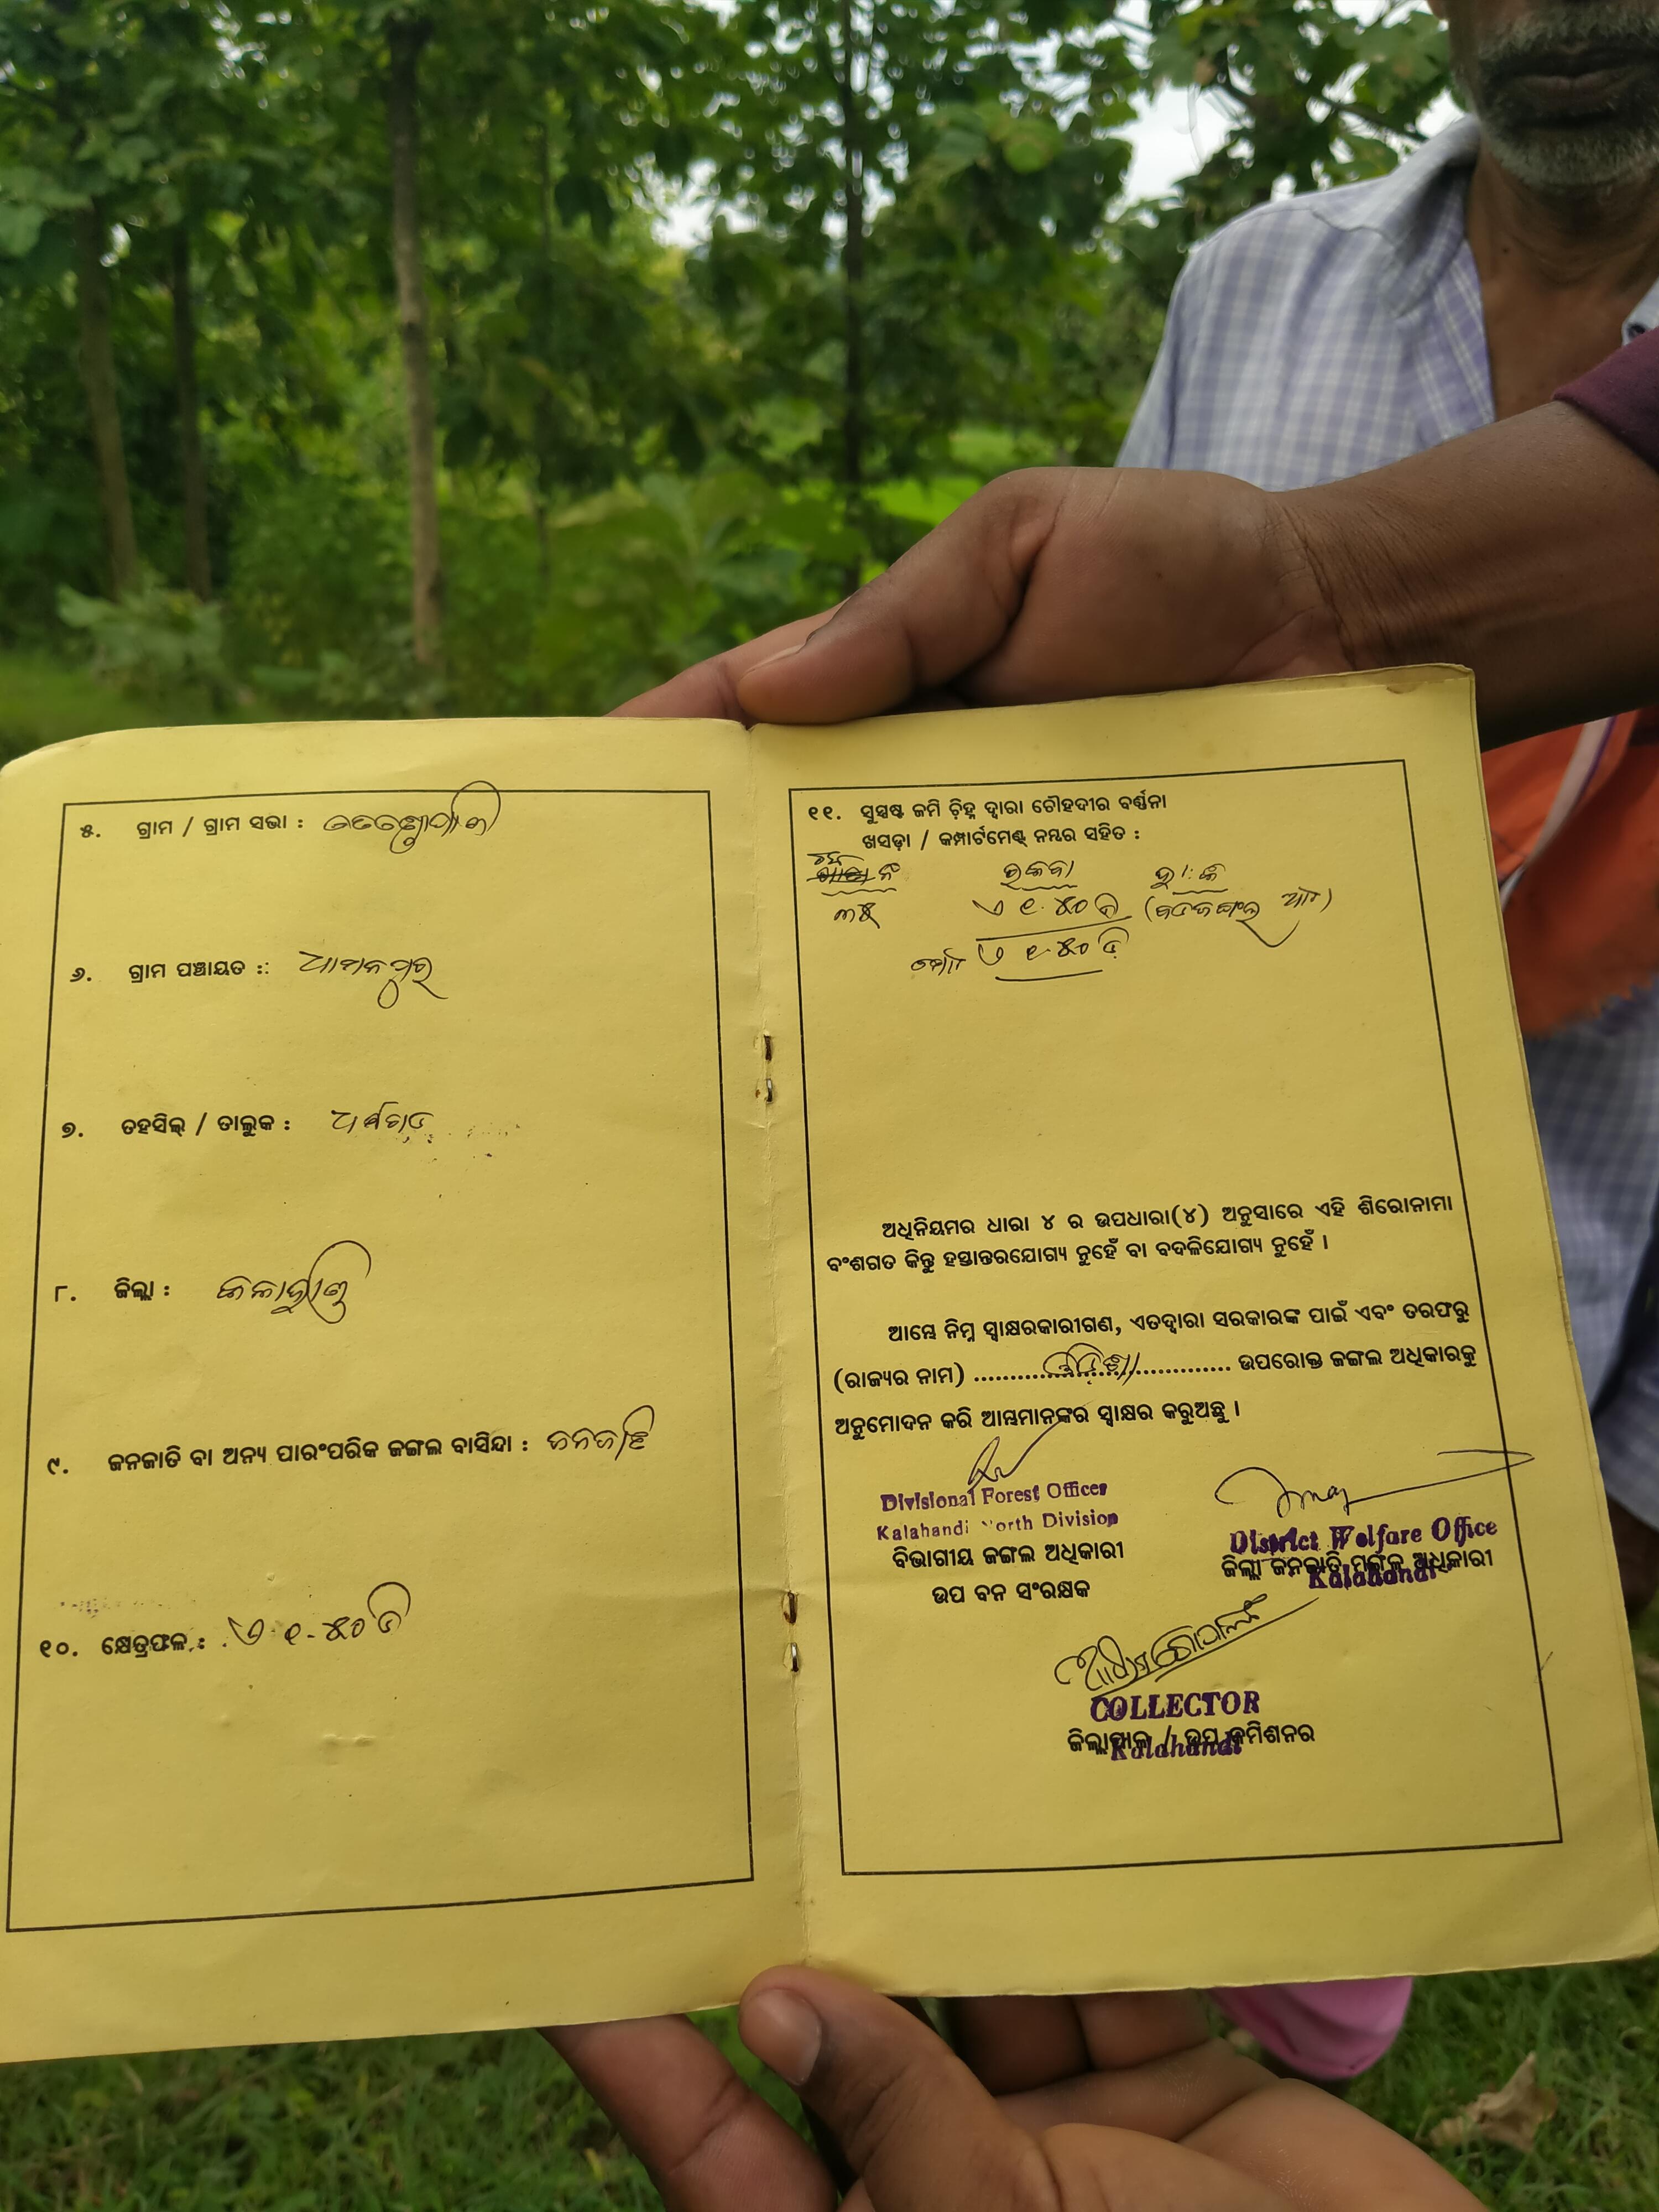 ୫. ଗ୍ରାମ / ଗ୍ରାମ ସଭା :
୬. ଗ୍ରାମ ପଞ୍ଚାୟତ :: 
୭. ତହସିଲ୍ / ତାଲୁକ :
୮. ଜିଲ୍ଲା : କଳାହାଣ୍ଡି
୯. ଜନଜାତି ବା ଅନ୍ୟ ପାରଂପରିକ ଜଙ୍ଗଲ ବାସିନ୍ଦା : ଜନଜାତି
୧୦. କ୍ଷେତ୍ରଫଳ : ଏ ୧.୫୦ ଡି
୧୧. ସୁସ୍ପଷ୍ଟ ଜମି ଚ଼ିହ୍ନ ଦ୍ଵାରା ଚୌହଦୀର ବର୍ଣ୍ଣନା
ଖସଡ଼ା / କମ୍ପାର୍ଟମେଣ୍ଟ୍ ନମ୍ବର ସହିତ :
ନଂ ରକବା
ଏ ୧.୫୦ ଡି
ଏ ୧.୫୦ ଡି
ଅଧିନିୟମର ଧାରା ୪ ର ଉପଧାରା(୪) ଅନୁସାରେ ଏହି ଶିରୋନାମା
ବଂଶଗତ କିନ୍ତୁ ହସ୍ତାନ୍ତରଯୋଗ୍ୟ ନୁହେଁ ବା ବଦଳିଯୋଗ୍ୟ ନୁହେଁ ।
ଆମ୍ଭେ ନିମ୍ନ ସ୍ଵାକ୍ଷରକାରୀଗଣ, ଏତଦ୍ଵାରା ସରକାରଙ୍କ ପାଇଁ ଏବଂ ତରଫରୁ
(ରାଜ୍ୟର ନାମ) ........ଓଡ଼ିଶା........ ଉପରୋକ୍ତ ଜଙ୍ଗଲ ଅଧିକାରକୁ
ଅନୁମୋଦନ କରି ଆମ୍ଭମାନଙ୍କର ସ୍ଵାକ୍ଷର କରୁଅଛୁ ।
Divisional Forest Officer
Kalahandi North Division
ବିଭାଗୀୟ ଜଙ୍ଗଲ ଅଧିକାରୀ
ଉପ ବନ ସଂରକ୍ଷକ
District Welfare Office
ଜିଲ୍ଲା ଜନଜାତି ମଙ୍ଗଳ ଅଧିକାରୀ
Kalahandi
COLLECTOR
ଜିଲ୍ଲାପାଳ / ଉପ କମିଶନର
Kalahandi